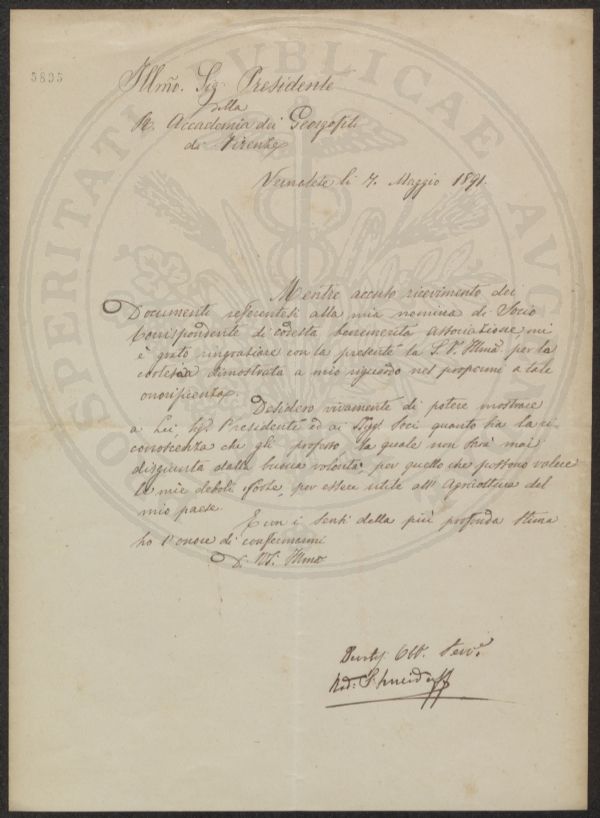 5835
Illmo. Sig. Presidente
della
R. Accademia dei Georgofili
di Firenze
li 7. Maggio 1891.
Mentre accuso ricevimento dei
Documenti referentesi alla mia nomina di Socio
Corrispondente di codesta benemerita associazione, mi
è grato ringraziare con la presente la S. V. Illma per la
cortesia dimostrata a mio riguardo nel propormi a tale
onorificenza.
Desidero vivamente di potere mostrare
a Lei Presidente ed ai Sigg. Soci quanto sia la ri-
conoscenza che gli professo la quale non sarà mai
disgiunta dalla buona volontà, per quello che possono valere
le mie deboli forze per essere utile all' Agricoltura del
mio paese.
E con i sensi della più profonda stima
ho l'onore di confermarmi
D. V. S. Illma
Devmo Obb. Servo
PROSPERITATI PVBLICAE AVGENDAE